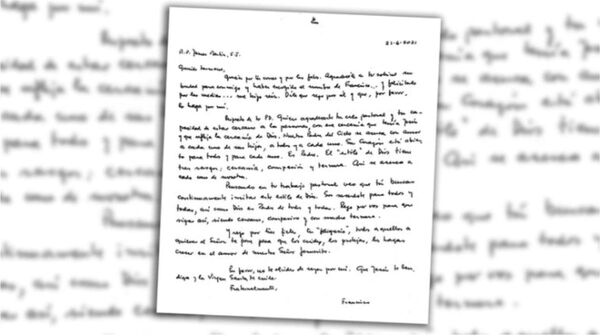 21-6-2021
R.P. James Martin, S.J.
Querido hermano,
Gracias por tu correo y por las fotos. Agradecele a tu sobrino su
bondad para conmigo y haber escogido el nombre de Francisco... y felicitalo
por las medias... me hizo reír. Dile que rezo por él y que, por favor,
lo haga por mí.
Respecto de tu P.S. Quiero agradecerte tu celo pastoral y tu ca-
pacidad de estar cercano a las personas, con esa cercanía que tenía Jesús
y que refleja la cercanía de Dios. Nuestro Padre del Cielo se acerca con amor
a cada uno de sus hijos, a todos y a cada uno. Su Corazón está abier-
to para todos y para cada uno. Es Padre. El "estilo" de Dios tiene
tres rasgos: cercanía, compasión y ternura. Así se acerca a
cada uno de nosotros.
Pensando en tu trabajo pastoral veo que tú buscas
continuamente imitar este estilo de Dios. Sos sacerdote para todos y
todas, así como Dios es Padre de todos y todas. Rezo por vos para que
sigas así, siendo cercano, compasivo y con mucha ternura.
Y rezo por tus fieles, tu "feligresía", todos aquellos a
quienes el Señor te puso para que los cuides, los protejas, los hagas
crecer en el amor de nuestro Señor Jesucristo.
Por favor, no te olvides de rezar por mí. Que Jesús te ben-
diga y la Virgen Santa te cuide.
Fraternalmente,
Francisco